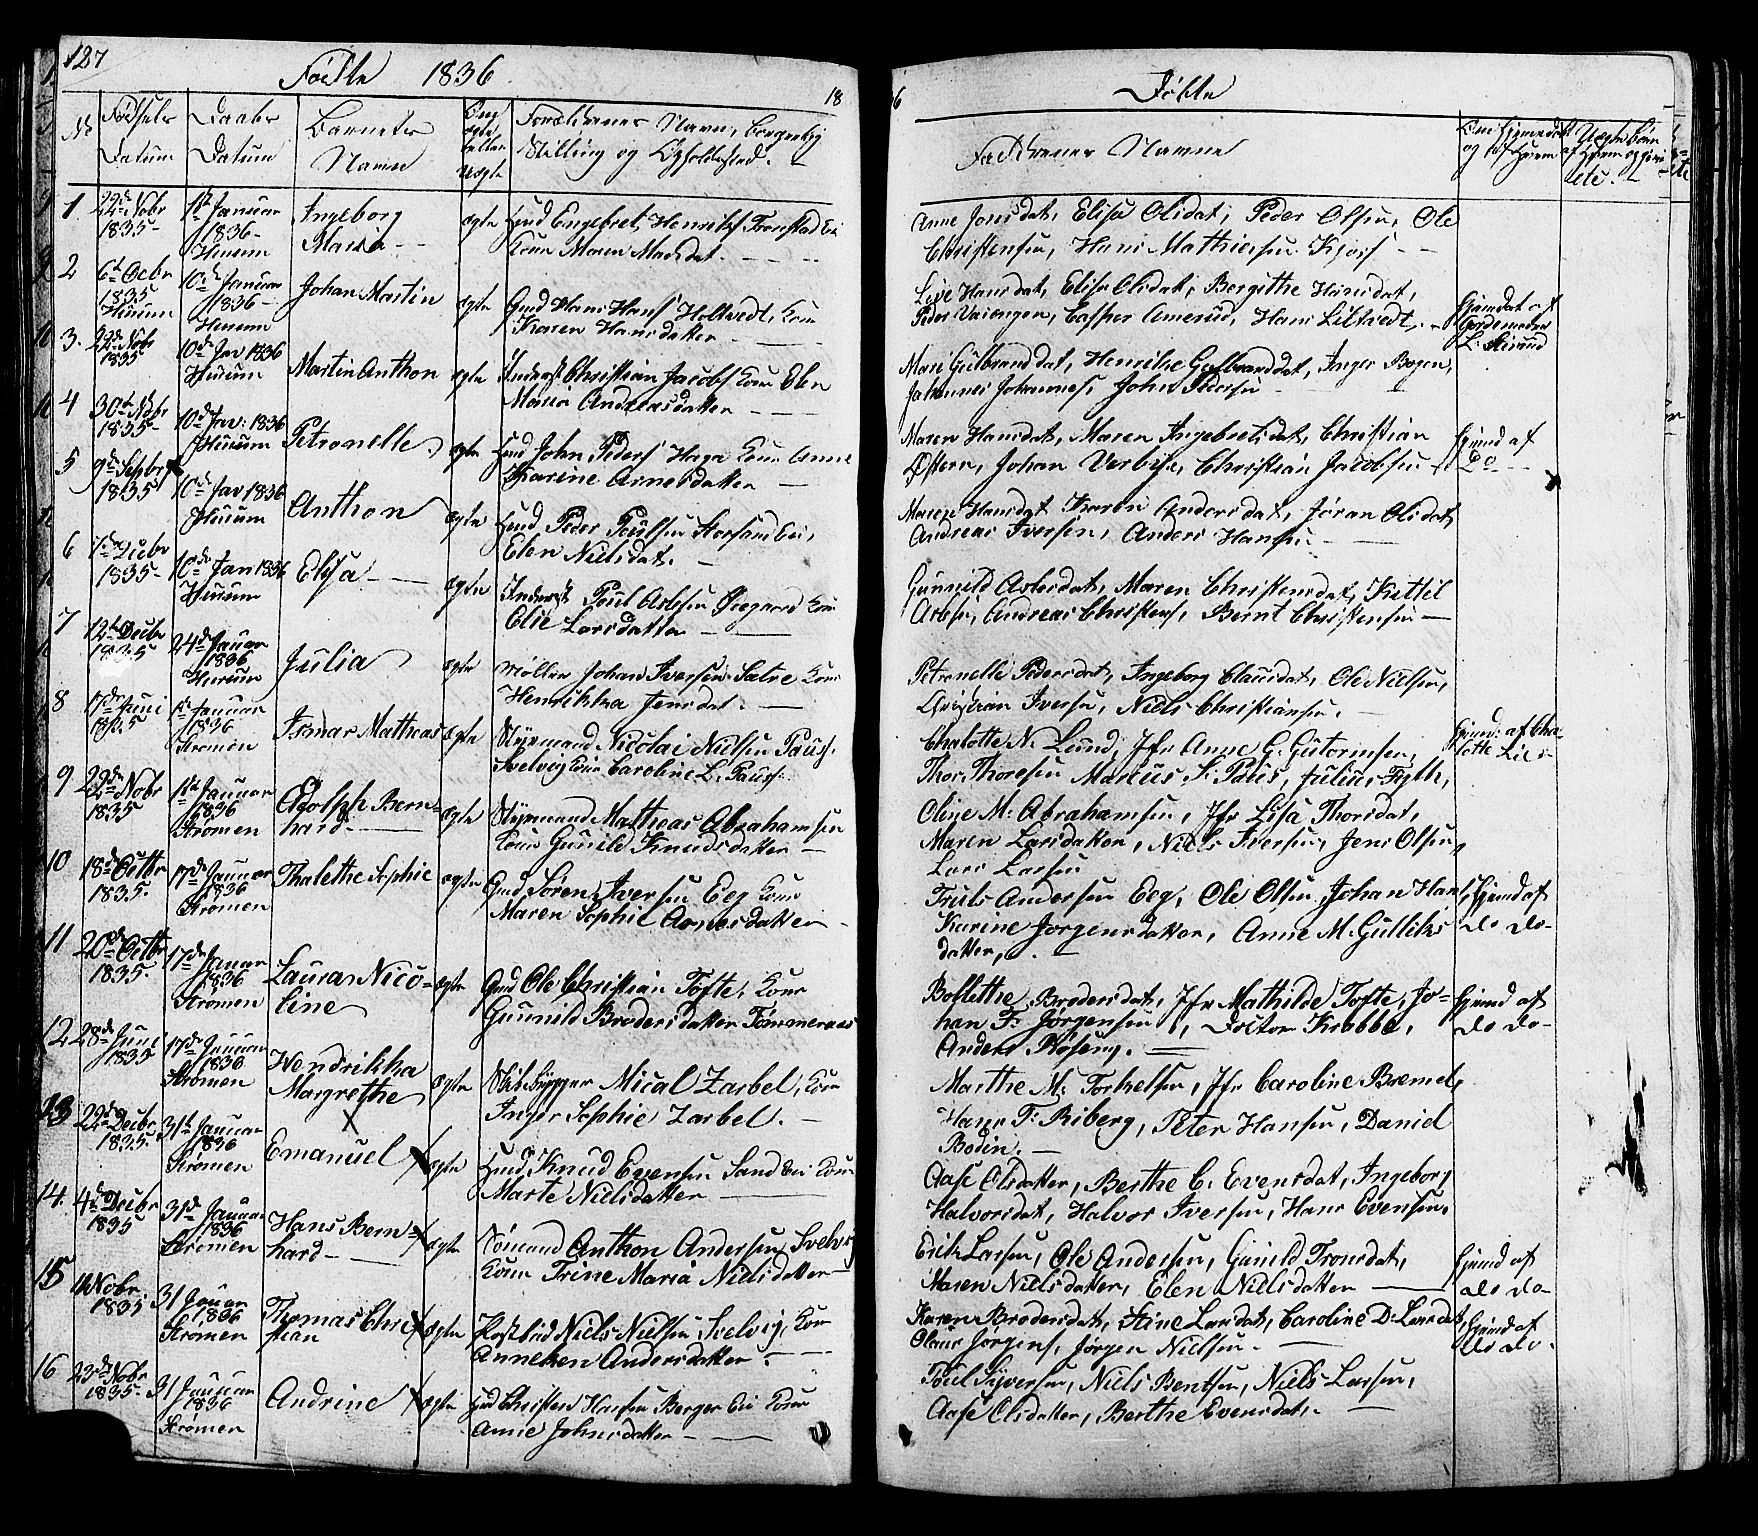 127
Födte 1836
18
No
Fødsels Datum
Daabs Datum
Barnets Navn
Forældrenes Navn, borgerlig Stilling og Opholdssted.
1.
22de Nobr 1835
1ste Januar 1836
Hurum
Ingeborg Maria
ægte
Huusmd Engebret Henriks Tronstad Ei
Kone Maren Madsdat.
2
6te Octbr 1835
Hurum
10de Januar 1836
Hurum
Johan Martin
ægte
Gmd Hans Hans Holtvedt, Kone
Karen Hansdatter
3.
22de Nobr 1835
10de Jav 1836
Hurum
Martin Anthon
ægte
Inderst Christian Jacobs Kone Elen
Maria Andreasdatter
4
30te Nobr 1835
10de Jav: 1836
Hurum
Petronelle
ægte
John Peders Haga Kone Anne
Karine Arnesdatter
5
9de Septbr 1835
10de Jav 1836
Hurum
Anthon
ægte
Peder Poulsen Storsand Ei,
Elen Nielsdat.
6
1ste Decbr 1835
10de Jan 1836
Hurum
Elisa
ægte
Inderst Poul Arbsen Kone
Elie Larsdatter
7
12te Decbr 1835
24de Januar 1836
Hurum
Julia
ægte
Møller Johan Iversen Sætre Kone
Henrikka Jensdat.
8
17de Juni 1835
1ste Januar 1836
Strömen
Ismar Mathias
ægte
Styrmand Nicolai Nielsen Paus
Svelvig Kone Caroline L. Paus
9
29de Nobr 1835
1ste Januar 1836
Strömen
Adolph Bern=
hard
ægte
Styrmand Mathias Abrahamsen
Kone Gunild Knudsdatter
10
18de Octbr 1835.
17de Januar 1836
Strömen
Thalethe Sophie
ægte
Gmd Sören Iversen Eeg Kone
Maren Sophie Arnesdatter
11
20de Octbr 1835.
17de Januar 1836
Strömen
Laura Nico=
line
ægte
Gmd Ole Christian Tofte, Kone
Gunnild Brodersdatter Tömmeraas
12
28de Juni 1835
17de Januar 1836
Strömen
Hendrikka
Margrethe
ægte
Skibsbygger Mical Zarbel, Kone
Inger Sophie Zarbel.
13
22de Decbr 1835
31te Januar 1836
Strömen
Emanuel
ægte
Knud Evensen Sand Ei Kone
Marte Nielsdatter
14.
4de Decbr 1835
31te Januar 1836
Strömen
Hans Bern=
hard
ægte
Sömand Anthon Andersen Svelvig
Kone Trine Maria Nielsdatter
15
11 Nobr 1835
31 Januar 1836
Strömen
Thomas Chri
stian
ægte
Postbud Niels Nielsen Svelvig, Kone
Anneken Andersdatter
16
23de Nobr 1835
31 Januar 1836
Strömen
Andrine
ægte
Christen Hansen Berger Ei Kone
Anne Johnsdatter
Födte
Faddrenes Navne
Anne Jonsdat, Elise Olidat, Peder Olsen, Ole
Christensen, Hans Mathiesen Kjos
Live Hansdat, Elise Olidat, Bergithe Hansdat,
Peder Vaiengen, Casper Amerud, Hans Liltvedt.
Hjemdøbt af
Mari Gulbranddat, Henrikke Gulbranddat, Inger Bogen,
Johannes Johannes, John Pedersen
Maren Hansdat, Maren Ingebretsdat, Christian
Østern, Johan Verbye, Christian Jacobsen
Hjemd af
Do
Maren Hansdat Karen Andersdat, Jöran Olidat
Andreas Iversen, Anders Hansen
Gunnild Aslesdat, Maren Christensdat, Kittil
Andreas Christens, Bernt Christensen
Petronelle Pedersdat, Ingeborg Clausdat, Ole Nielsen,
Christian Iversen, Niels Christiansen.
Chalotte N. Lund, Jfr Anne G. Gutormsen,
Thor Thoresen Marius S. Paus, Julius Fyth,
Hjemd: af Cha=
lotte Lie
Oline M. Abrahamsen, Jfr Lisa Thorsdat,
Maren Larsdatter, Niels Iversen, Jens Olsen,
Lars Larsen
Truls Andersen Eeg, Ole Olsen, Johan Hans
Karine Jörgensdatter, Anne M. Gulliks
datter,
Hjemd af
do do
Bollethe Brodersdat, Jfr Mathilde Tofte, Jo=
han F. Jörgensen, Doctor Krabbe,
Anders Röseng.
Hjemd af
do do
Marthe M. Torkelsen, Jfr Caroline Bremel,
Hans F. Riberg, Peter Hansen, Daniel
Bodin.
Aase Olsdatter, Berthe C. Evensdat, Ingeborg
Halvorsdat, Halvor Iversen, Hans Evensen.
Erik Larsen, Ole Andersen, Gunild Tronsdat,
Maren Nielsdatter, Elen Nielsdatter
Hjemd af
do do
Karen Brodersdat, Stine Larsdat, Caroline D. Larsdat,
Olaus Jörgens, Jörgen Nielsen.
Hjemd af
do do.
Poul Syversen, Niels Bentsen, Niels Larsen,
Aase Olsdatter, Berthe Evensdat.